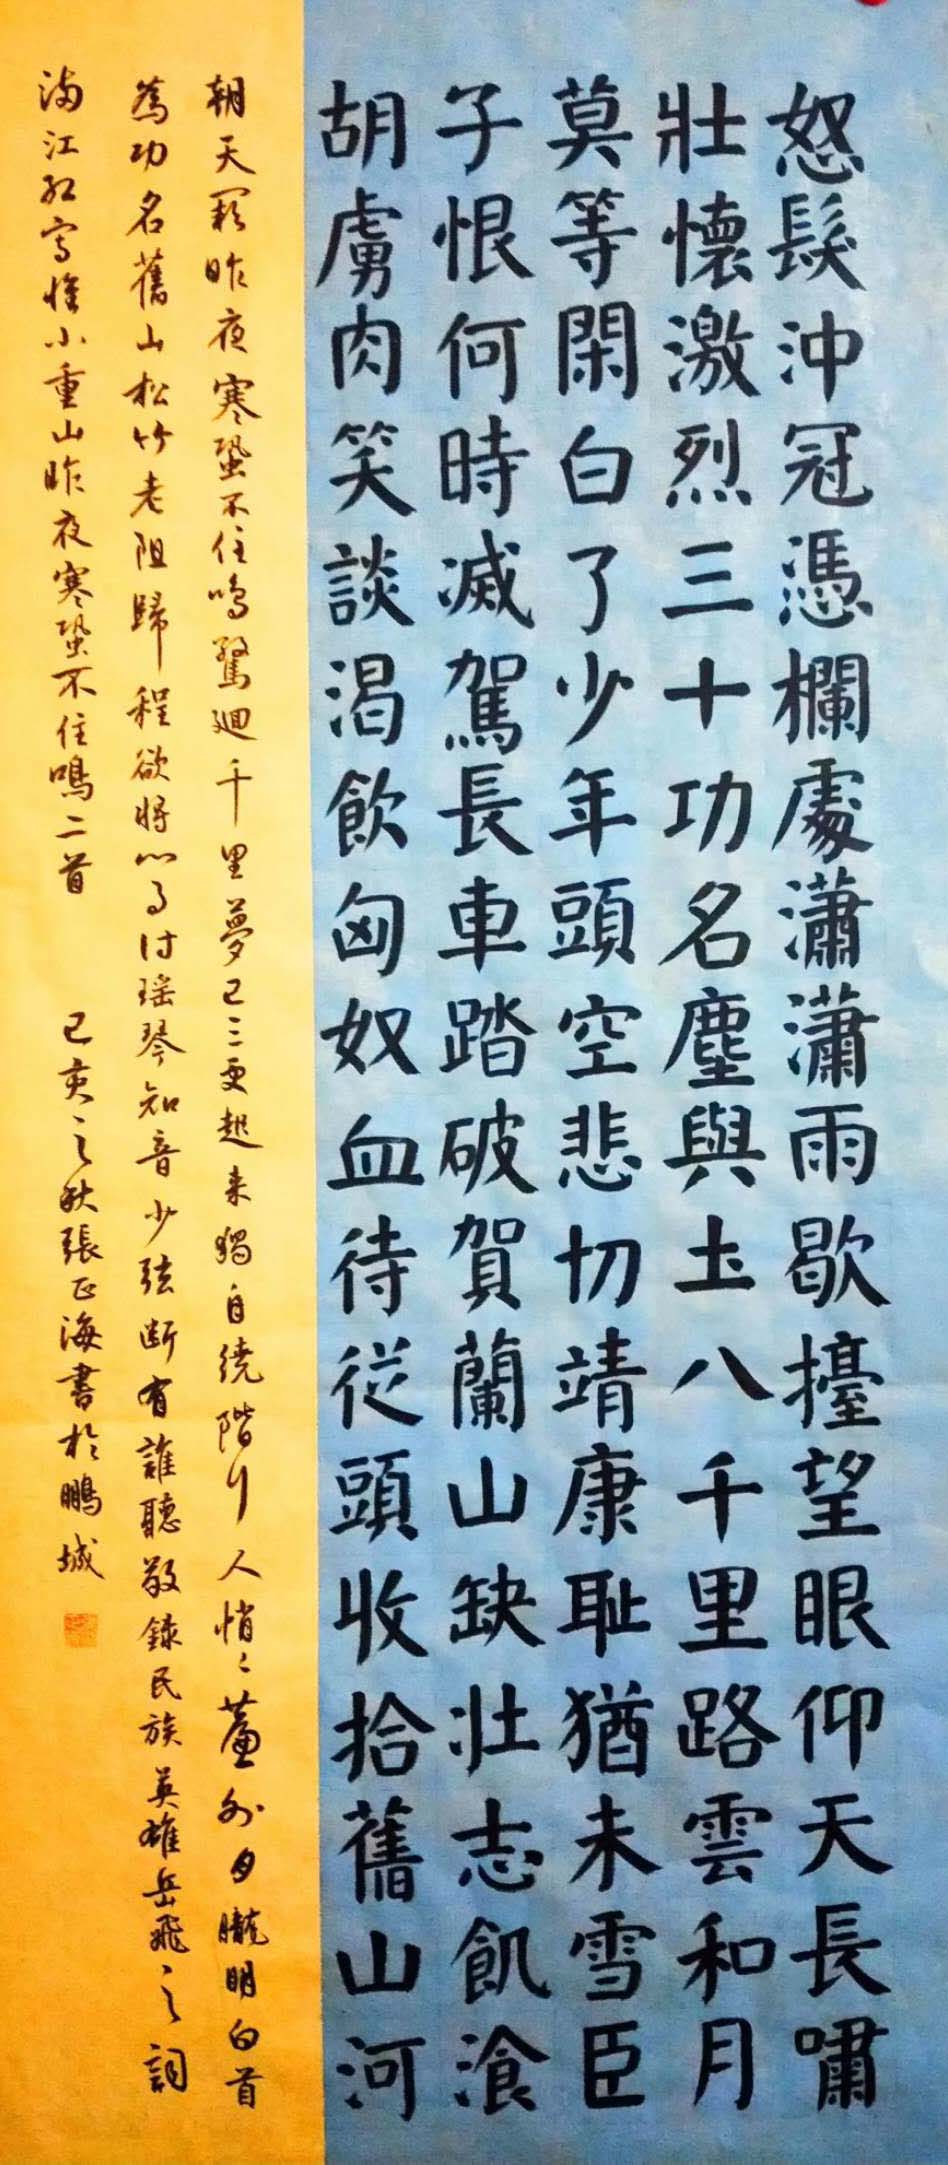 怒髮沖冠憑欄處瀟瀟雨歇擡望眼仰天長嘯
壯懷激烈三十功名塵與土八千里路雲和月
莫等閑白了少年頭空悲切靖康耻猶未雪臣
子恨何時滅駕長車踏破賀蘭山缺壯志飢飡
胡虜肉笑談渴飲匈奴血待從頭收拾舊山河
朝天闕昨夜寒蛩不住鳴驚迴千里夢已三更起来獨自繞階行人悄悄簾外月朧明白首
為功名舊山松竹老阻歸程欲將心事付瑶琴知音少弦断有誰聽敬錄民族英雄岳飛之詞
满江红寫懷小重山昨夜寒蛩不住鳴二首
己亥之秋張正海書於鵬城